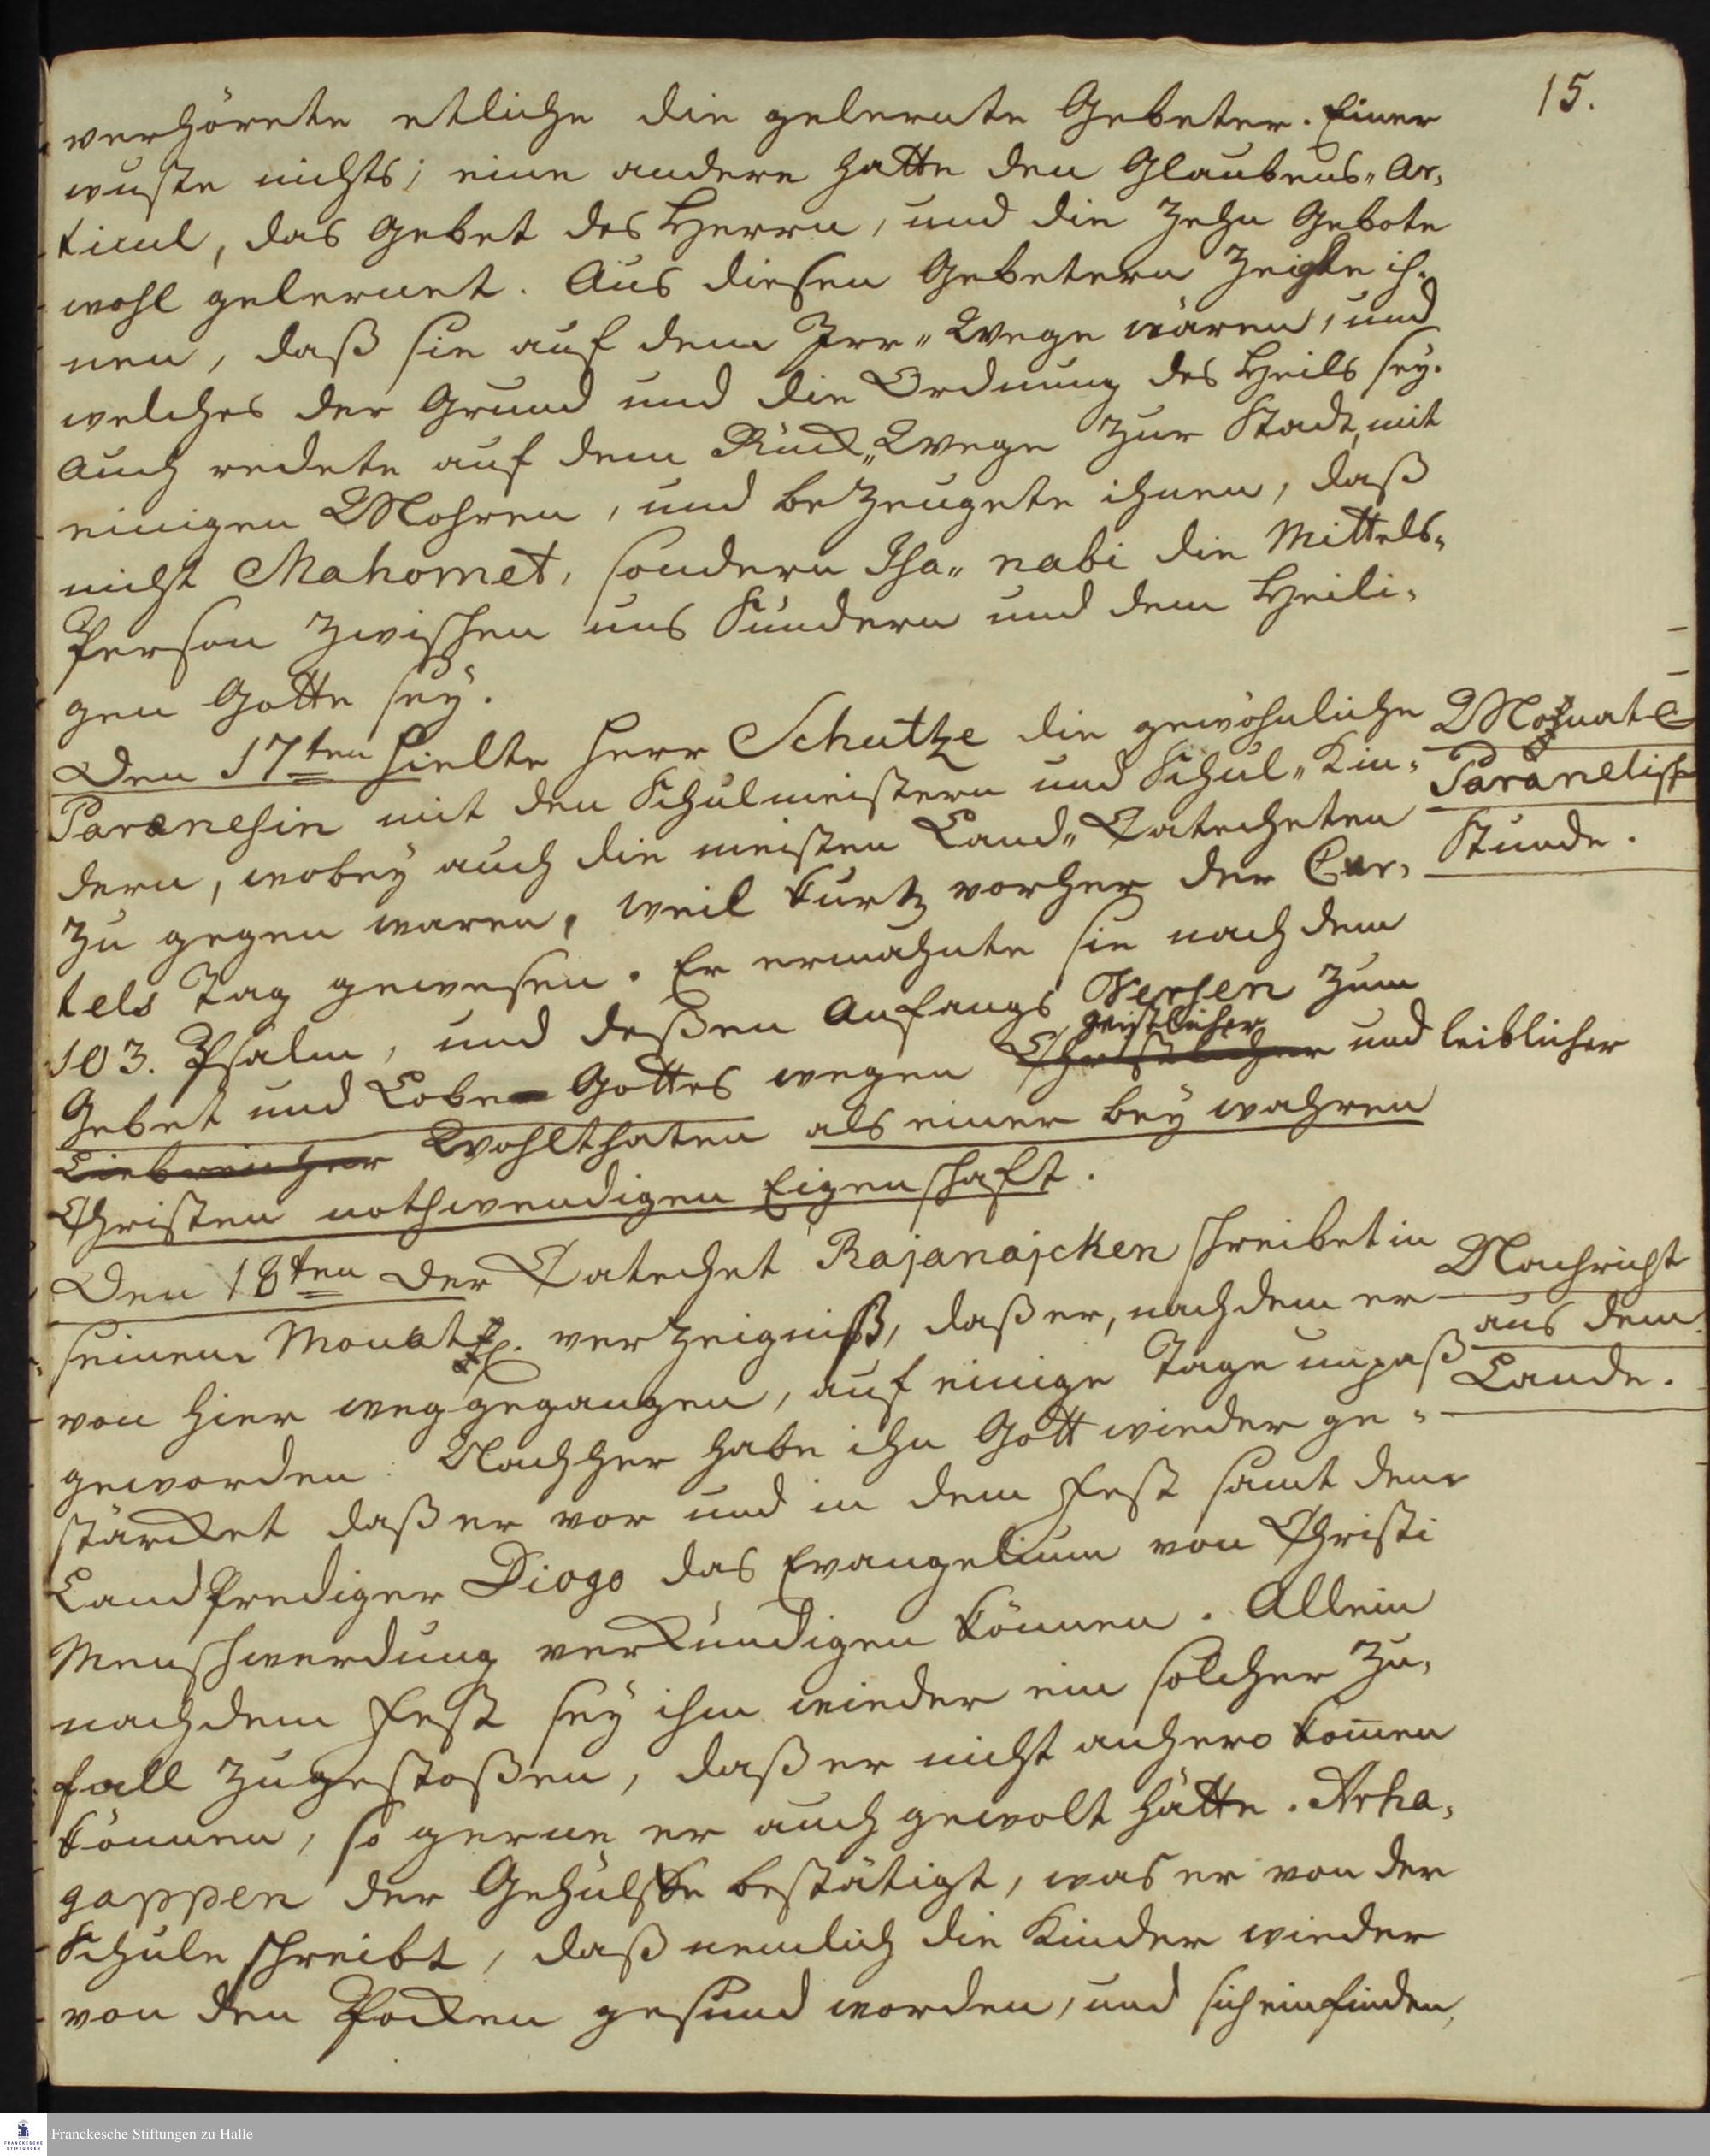 15.
verhörete etliche die gelernte Gebeter. Einer
wuste nichts; eine andere hatte den Glaubens-Ar-
ticul, das Gebet des Herrn, und die Zehn Gebote
wohl gelernet. Aus diesen Gebetern Zeigte ih-
nen, daß sie auf dem Irr-Wege wären, und
welches der Grund und die Ordnung des Heils sey.
Auch redete auf dem Rück-Wege zur Stadt, mit
einigen Mohren, und beZeugete ihnen, daß
nicht Mahomet, sondern Isa-nabi die Mittels-
Person Zwischen uns Sündern und dem Heili-
gen Gotte sey.
Den 17ten hielte Herr Schutze die gewöhnliche
Paranesin mit den Schulmeistern und Schul-Kin-
dern, wobey auch die meisten Land-Catecheten
Zu gegen waren, weil kurtz vorher der Car-
tels Tag gewesen. Er ermahnte sie nach dem
103. Psalm, und deßen Anfangs Versen Zum
Gebet und Lobe Gottes wegen Christlicher geistlicher und leiblicher
Liebreicher Wohlthaten als einer bey wahren
Christen nothwendigen Eigenschaft.
Monats
Paränetisch
Stunde.
Den 18ten Der Catechet Rajanajcken schreibet in
seinem Monatl. verZeigniß, daß er, nachdem er
von hier weggegangen, auf einige Tage unpaß
geworden: Nachher habe ihn Gott wieder ge-
stärcket daß er vor und in dem Fest samt dem
LandPrediger Diogo das Evangelium von Christi
Menschwerdung verkündigen können. Allein
nach dem Fest sey ihm wieder ein solcher Zu-
fall zugestoßen, daß er nicht anhero kom̄en
können, so gerne er auch gewolt hätte. Arha-
gappen der Gehülffe bestätigt, was er von der
Schule schreibt, daß nemlich die Kinder wieder
von den Pocken gesund worden, und sich einfinden,
Nachricht
aus dem
Lande.
Franckesche Stiftungen zu Halle
FRANCKESCHE
STIFTUNGEN